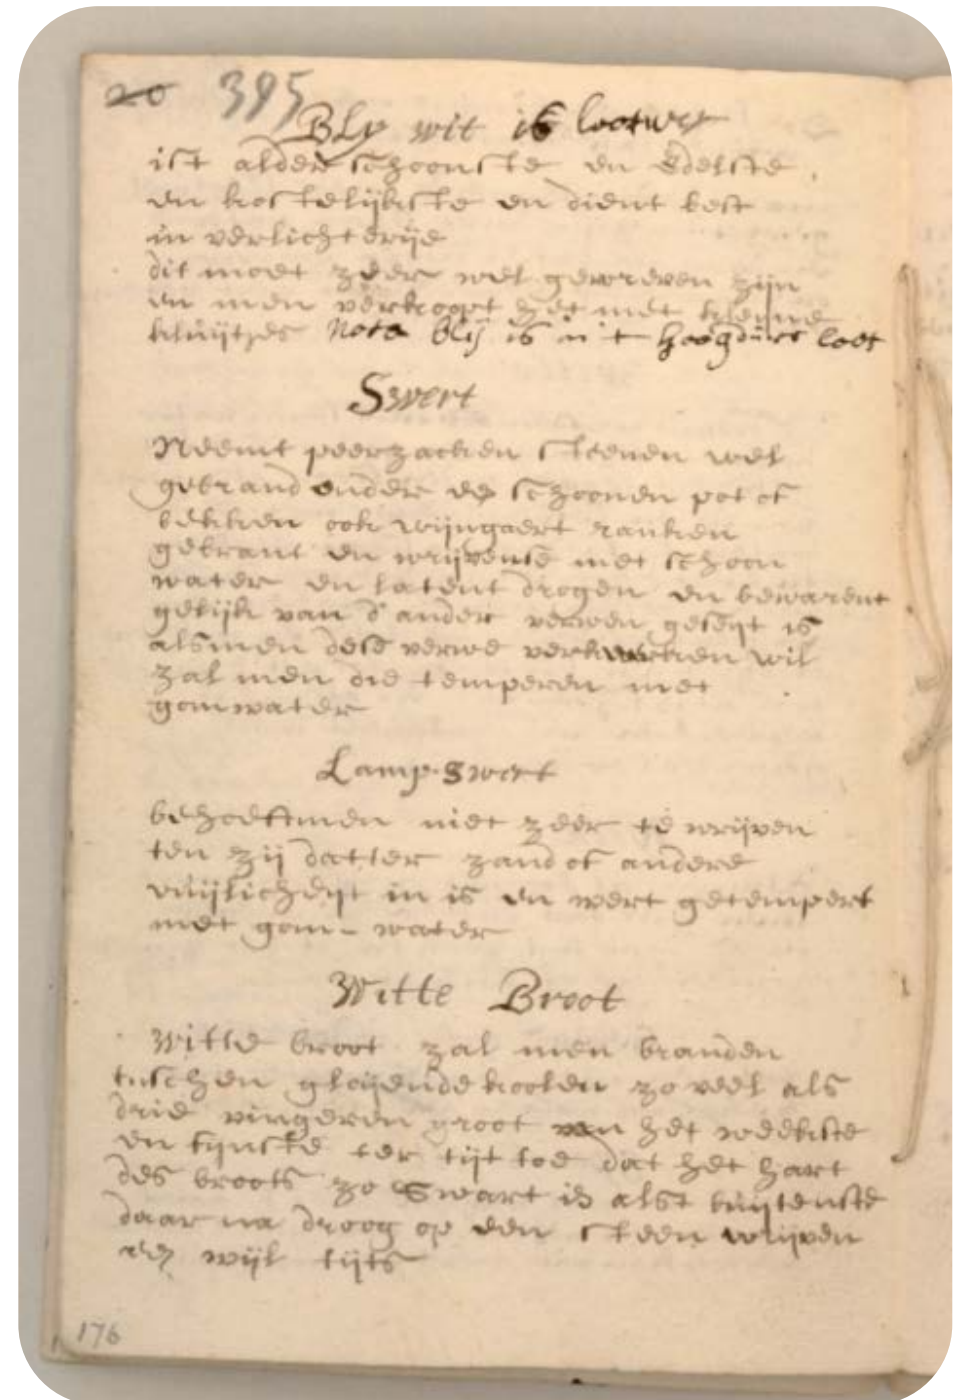 20 395
Bly wit is lootwit
ist alder schoonste en Edelste
en kostelijkste en dient best
in verlichterije
dit moet zeer wel gewreven zijn
en men verkoopt het met kleijne
kluijtjes Nota blij is in't hoogduits loot
Swert
Neemt peerzacken steenen wel
gebrand onder een schoonen pot of
bekken ook wijngaert rancken
gebrant en wrijvense met schoon
water en latent drogen en bewarent
gelijk van d'ander verwen geseijt is
alsmen dese verwe wil
zal men die temperen met
gomwater
Lamp-swert
behoeftmen niet zeer te wrijven
ten zij datter zand of andere
vuijlicheijt in is en wert getempert
met gom-water
Witte Broot
Witte broot zal men branden
tuschen gloijende koolen zo veel als
drie vingeren groot van het weekste
en fijnste ter tijt toe dat het hart
des broots zo Swart is alst buijtenste
daar na droog op een steen wrijven
een wijl tijts
176